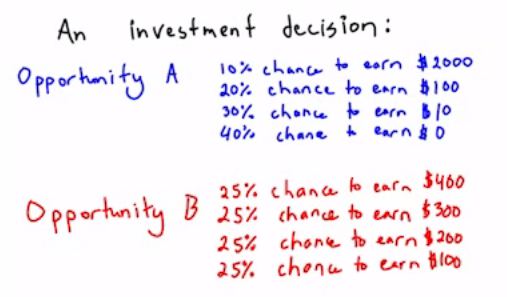 An investment decision:
Opportunity A
10% chance to earn $2000
20% chance to earn $100
30% chance to earn $10
40% chane to earn $0
Opportunity B
25% chance to earn $400
25% chance to earn $300
25% chance to earn $200
25% chance to earn $100